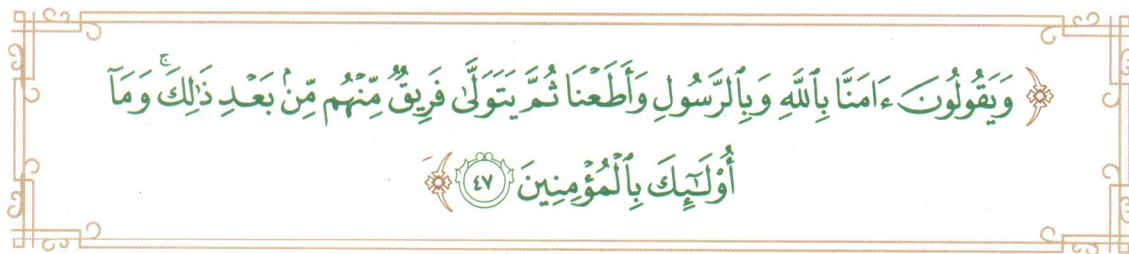 ﴿ وَيَقُولُونَ ءَامَنَّا بِٱللَّهِ وَبِٱلرَّسُولِ وَأَطَعۡنَا ثُمَّ يَتَوَلَّىٰ فَرِيقٞ مِّنۡهُم مِّنۢ بَعۡدِ ذَٰلِكَۚ وَمَآ
أُوْلَـٰٓئِكَ بِٱلۡمُؤۡمِنِينَ ٤٧ ﴾